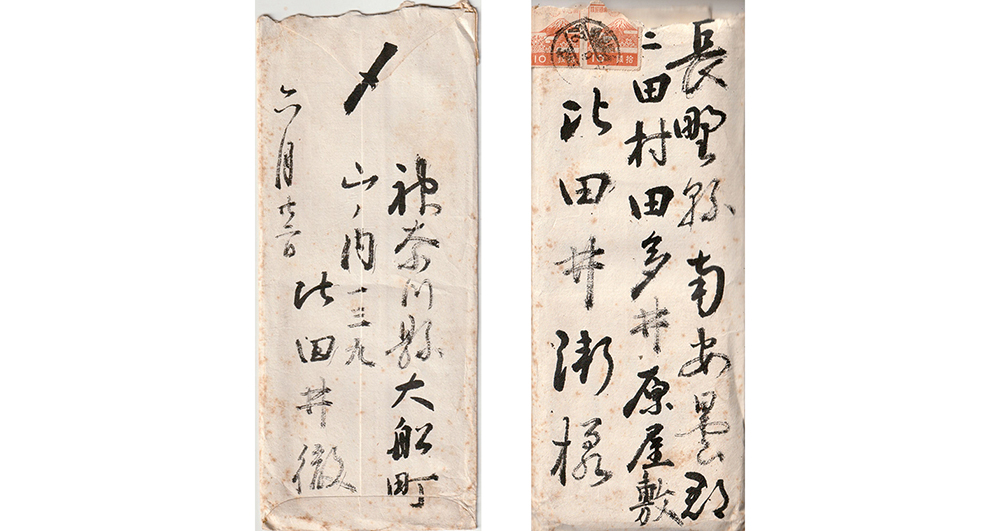 長野縣南安曇郡
二田村田多井原屋敷
比田井漸様
10 拾錢
10 拾錢
〆
神奈川縣大船町
山ノ内一三九
比田井徹
六月